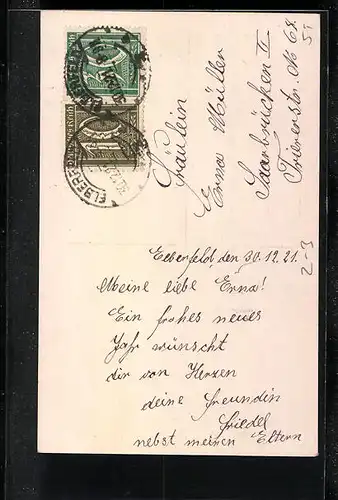 Fräulein
Erna Müller
Saarbrücken II
Triererstr. No 68.
Elberfeld, den 30.12.21.
Meine liebe Erna!
Ein frohes neues
Jahr wünscht
dir von Herzen
deine Freundin
Friedel
nebst meinen Eltern
2-3
ELBERFELD